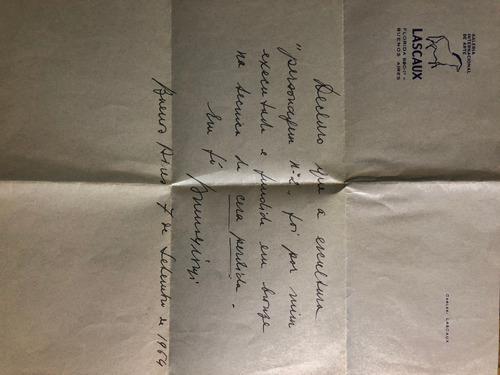 GALERIA
INTERNACIONAL
DE ARTE
LASCAUX
FLORIDA
BUENOS AIRES
CABLES: LASCAUX
Declaro que a escultura
"personagem foi por mim
executada e fundida em bronze
na tecnica de cera perdida.
Em fé
Buenos Aires 7 de Setembro de 1964